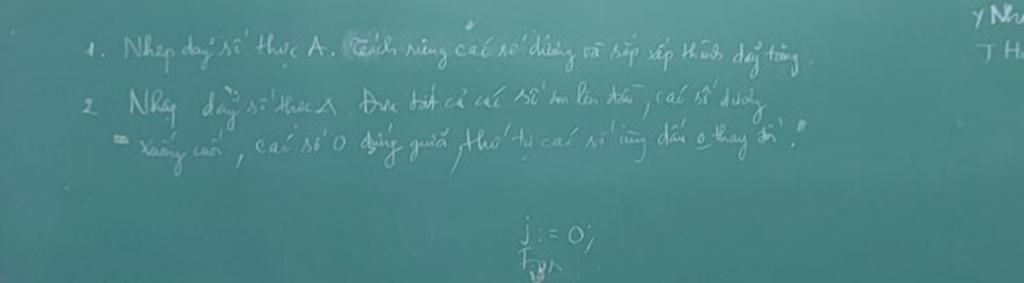 y Nh
T H
1. Nhập dãy số thực A. Tách riêng các số dương và sắp xếp thành dãy tăng.
2 Nhập dãy số thực A Đưa tất cả các số âm lên đầu, các số dương
xuống cuối, các số 0 đứng giữa, thứ tự các số cùng dấu o thay đổi.
j := 0;
For